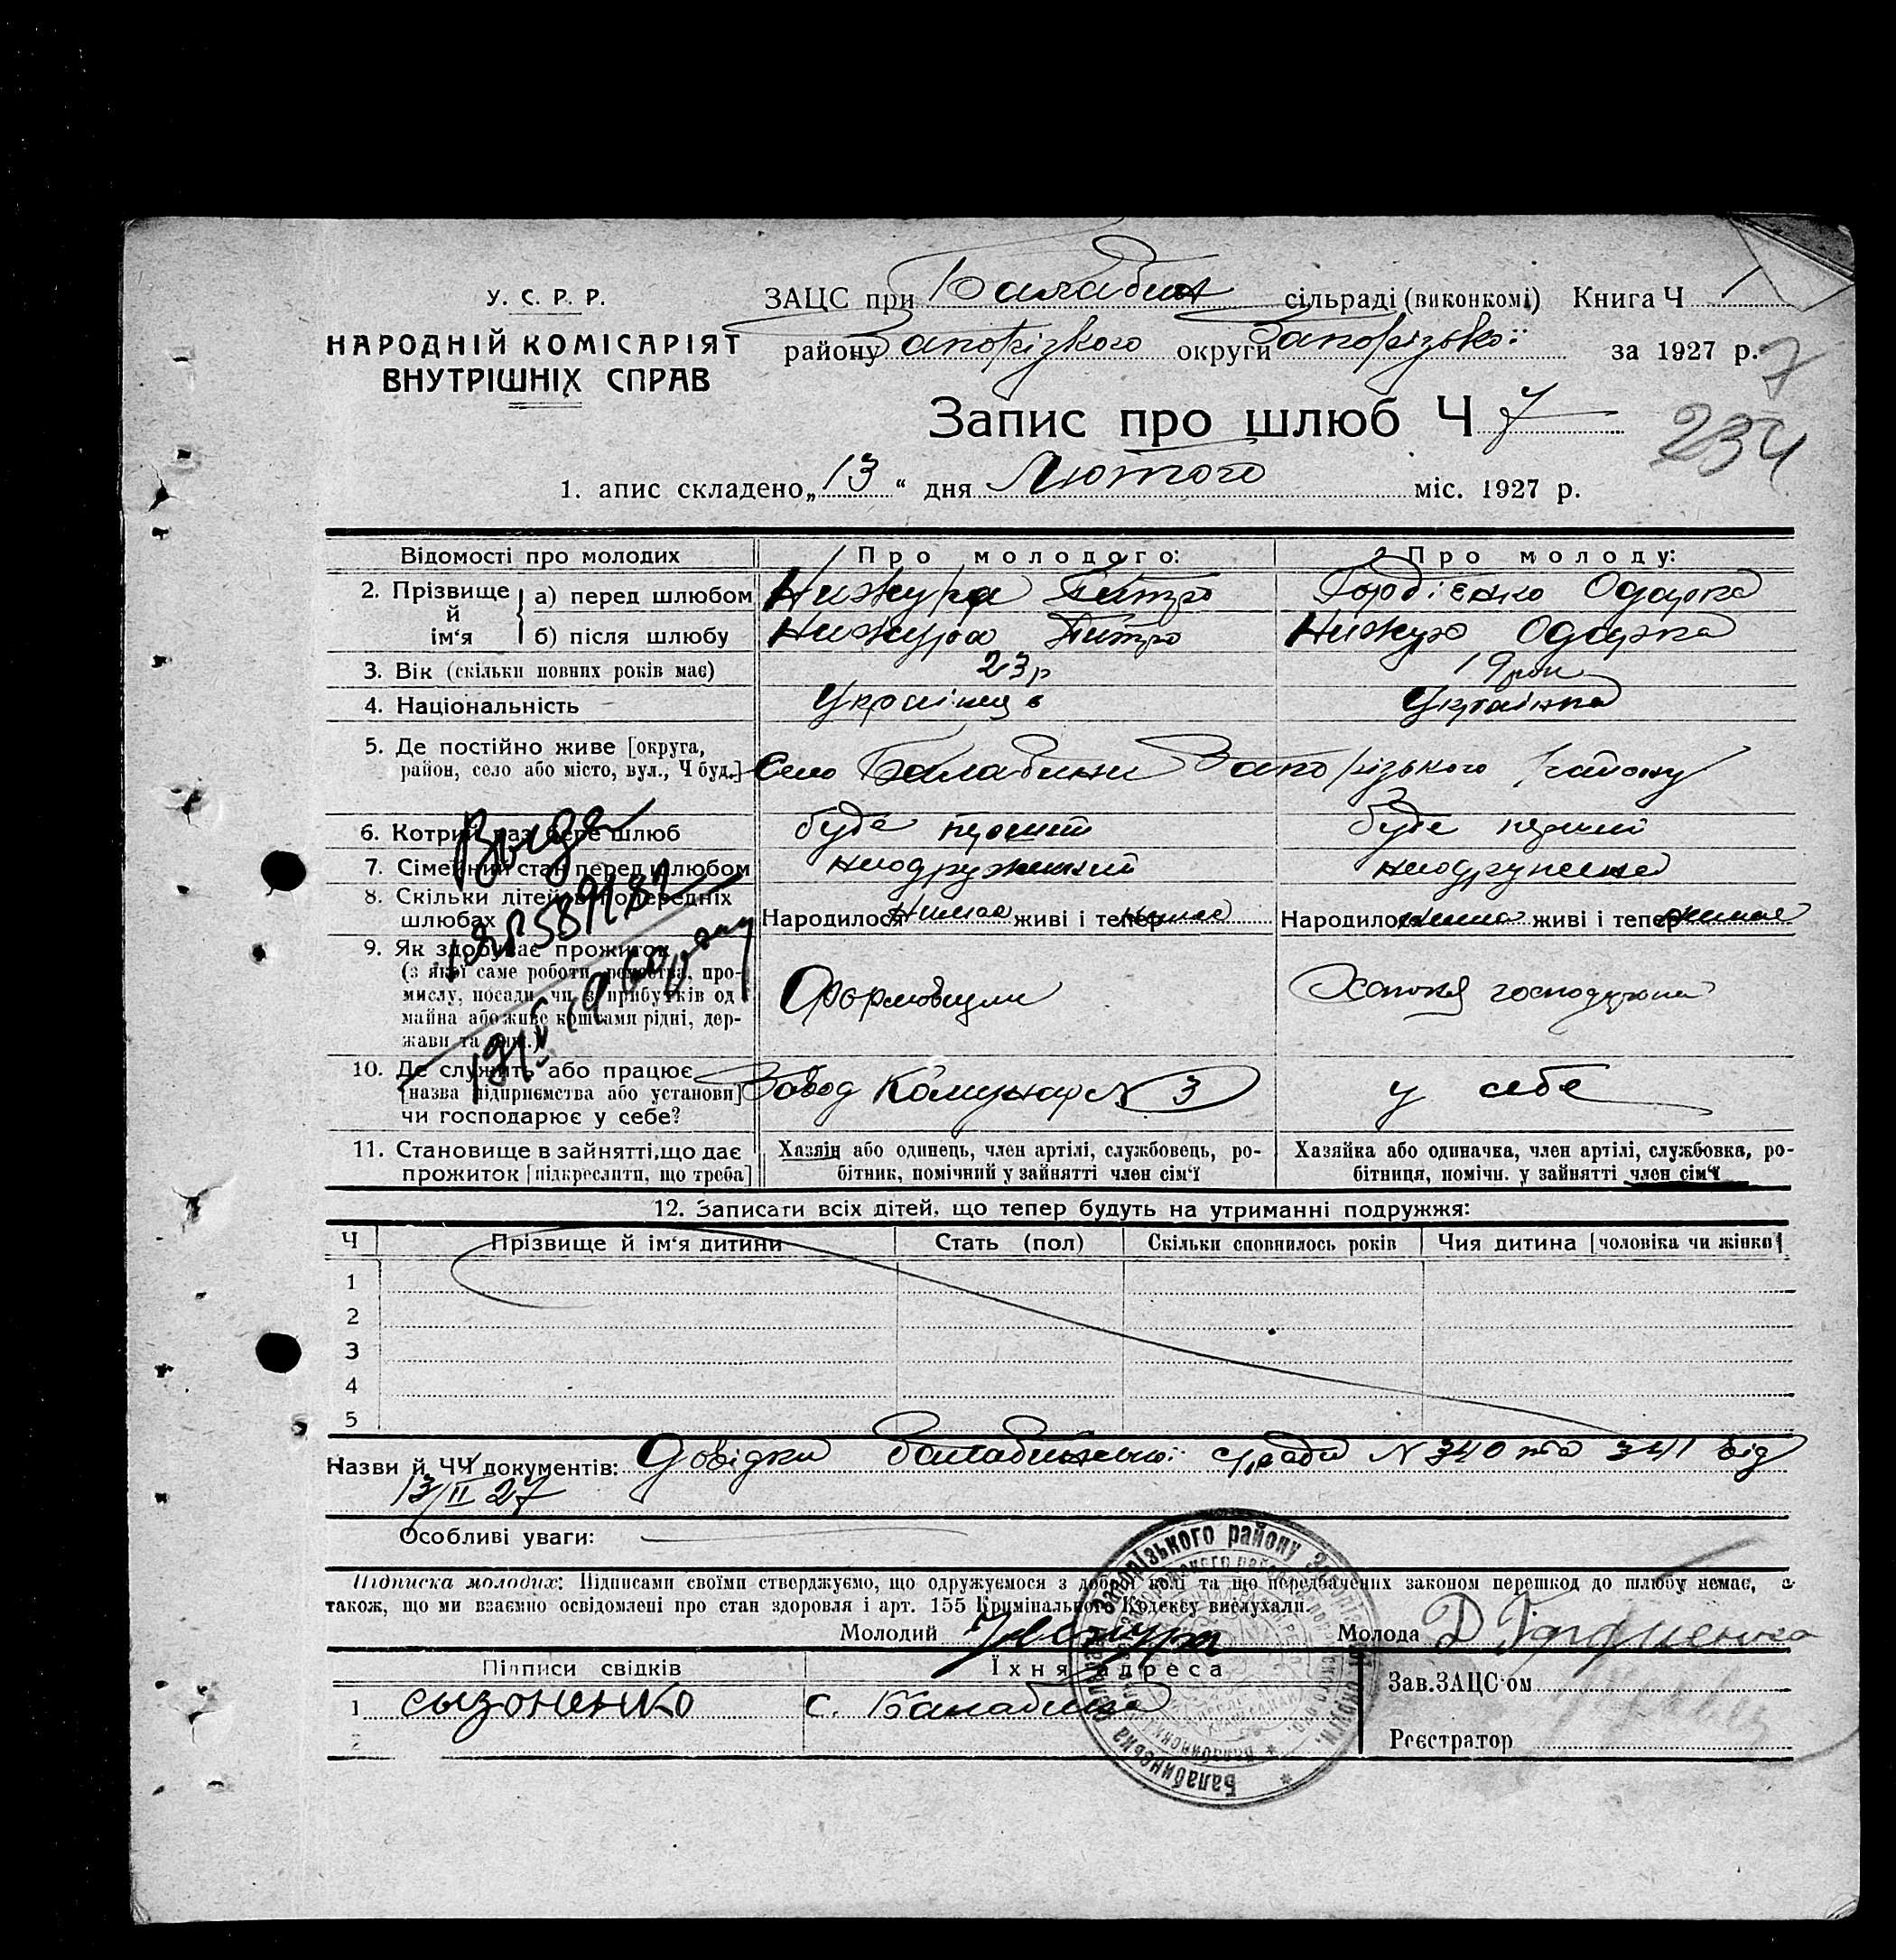 У. С. Р. Р.
НАРОДНІЙ КОМІСАРІЯТ
ВНУТРІШНІХ СПРАВ
ЗАЦС при Балабин сільраді (виконкомі) Книга Ч 1
району Запорізкого округи Запорізької за 1927 р. 7
Запис про шлюб Ч 7
234
1. апис складено „ 13 “ дня Лютого міс. 1927 р.
Відомості про молодих Про молодого: Про молоду:
2. Прізвище й ім‘я а) перед шлюбом Нижура Питро Гордієнко Одарка
б) після шлюбу Нижура Питро Нижура Одарка
3. Вік (скільки повних років має) 23р 19
4. Національність Українець Українка
5. Де постійно живе [округа,
район, село або місто, вул., Ч буд.] Село Балабини Запорізького району
6. Котрий раз бере шлюб буде перший буде перший
7. Сімейний стан перед шлюбом ниодружиний ниодружена
8. Скільки дітей в попередніх
шлюбах Народилося нимае живі і тепер нимае Народилося нимае живі і тепер нимае
9. Як здобуває прожиток
(з якої саме роботи, ремества, про-
мислу, посади, чи з прибутків од
майна або живе коштами рідні, дер-
жави та инш.) Формовщик господарка
10. Де служить або працює
[назва підприємства або установи]
чи господарює у себе? Завод Комунар N 3 у себе
11. Становище в зайнятті, що дає
прожиток [підкреслити, що треба]
Хазяїн або одинець, член артілі, службовець, ро-
бітник, помічний у зайнятті член сім‘ї
Хазяйка або одиначка, член артілі, службовка, ро-
бітниця, помічн. у зайнятті член сім‘ї
12. Записати всіх дітей, що тепер будуть на утриманні подружжя:
Ч Прізвище й ім‘я дитини Стать (пол) Скільки сповнилось років Чия дитина [чоловіка чи жінки]
1
2
3
4
5
Назви й ЧЧ документів: Довідки Балабинської с/ради N 340 та 341 від
13/II 27
Особливі уваги:
Підписка молодих: Підписами своїми стверджуємо, що одружуємося з доброї волі та що передбачених законом перешкод до шлюбу немає, а
також, що ми взаємно освідомлені про стан здоровля і арт. 155 Кримінального Кодексу вислухали.
Молодий Нижура Молода Д Гордиенко
Підписи свідків Їхня адреса Зав. ЗАЦС‘ом
1 сызоненко с. Балабине
2 Реєстратор
Балабинська сільська рада Запорізького району Запорізької округи.